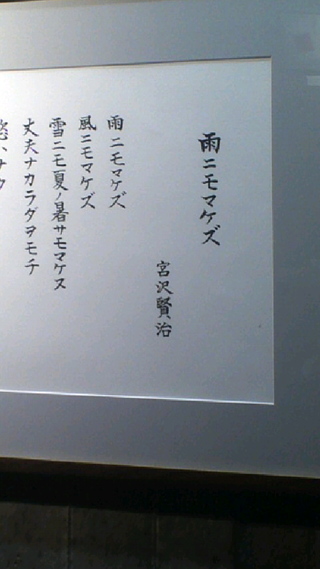 雨ニモマケズ
宮沢賢治
雨ニモマケズ
風ニモマケズ
雪ニモ夏ノ暑サモマケヌ
丈夫ナカラダヲモチ
慾ハナク